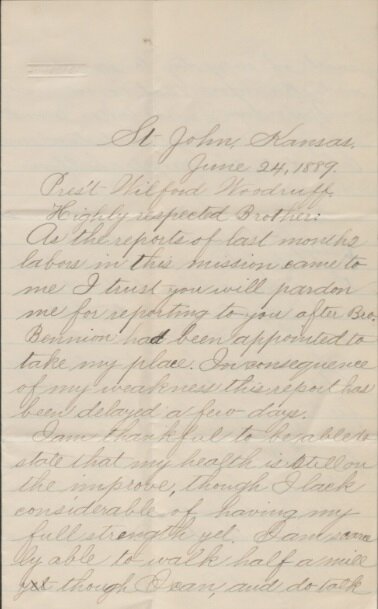 St. John, Kansas.
June 24, 1889.
Pres't Wilford Woodruff,
Highly respected Brother:
As the reports of last months
labors in this mission came to
me I trust you will pardon
me for reporting to you after Bro.
Bennion had been appointed to
take my place. In consequence
of my weakness this report has
been delayed a few days.
I am thankful to be able to
state that my health is still on
the improve, though I lack
considerable of having my
full strength yet. I am scarce
ly able to walk half a mile
yet though I can, and do talk